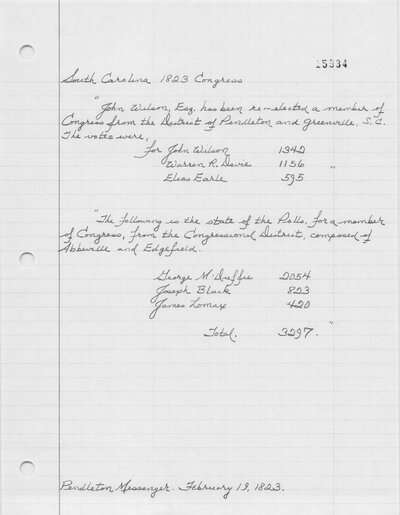 15934
South Carolina 1823 Congress
"John Wilson, Esq. has been re-elected a member of
Congress from the District of Pendleton and Greenville, S.C.
The votes were,
for John Wilson 1342
Warren R. Davie 1156 "
Elias Earle 595
"The following is the state of the Polls, for a member
of Congress, from the Congressional District, composed of
Abbeville and Edgefield.
George McDuffie 2054
Joseph Black 823
James Lomax 420
Total. 3297. "
Pendleton Messenger. February 19, 1823.